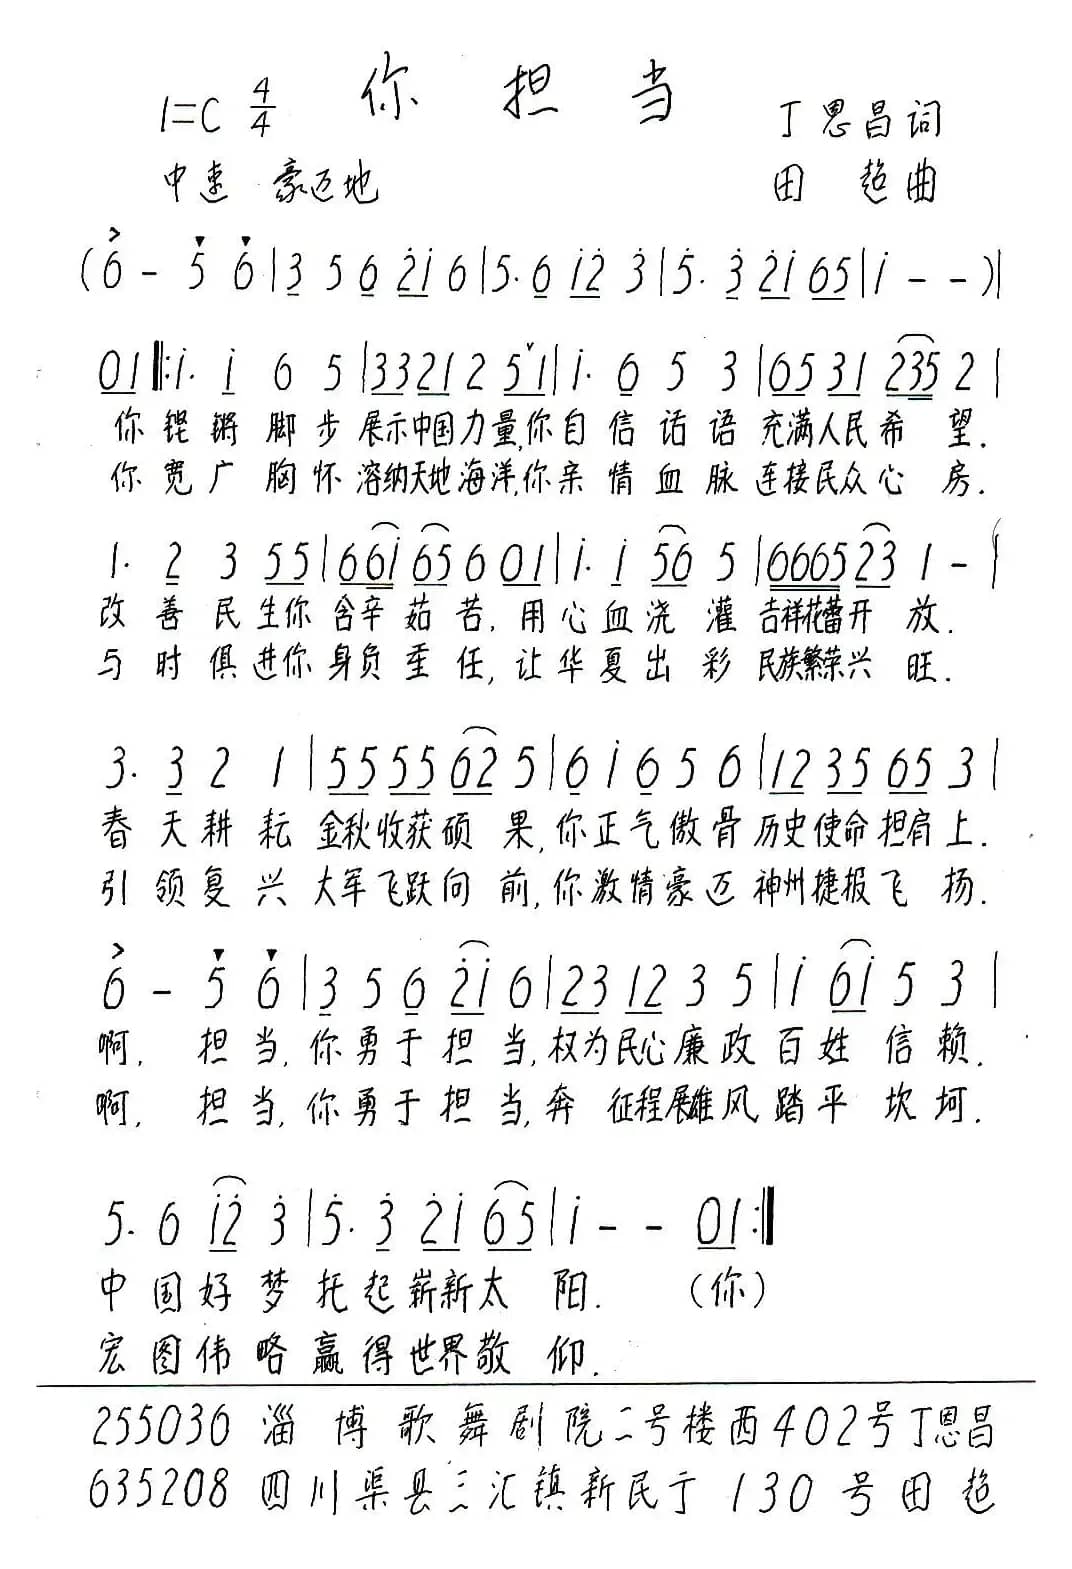 你担当
1=C 4/4
丁恩昌词
中速 豪迈地
田超曲
(6 - 5 6 | 3 5 6 2̇1̇ 6 | 5. 6 1̇2̇ 3̇ | 5̇. 3̇ 2̇1̇ 65 | 1̇ - - ) |
01 ‖: 1̇. 1̇ 6 5 | 33 21 2 51 | 1̇. 6 5 3 | 65 31 235 2 |
你铿锵脚步展示中国力量,你自信话语充满人民希望.
你宽广胸怀溶纳天地海洋,你亲情血脉连接民众心房.
1. 2 3 55 | 661̇ 65 6 01 | 1̇. 1̇ 56 5 | 6665 23 1 - |
改善民生你含辛茹苦,用心血浇灌吉祥花蕾开放.
与时俱进你身负重任,让华夏出彩民族繁荣兴旺.
3. 3 2 1 | 55 55 62 5 | 6 1̇ 6 5 6 | 12 35 65 3 |
春天耕耘金秋收获硕果,你正气傲骨历史使命担肩上.
引领复兴大军飞跃向前,你激情豪迈神州捷报飞扬.
6 - 5 6 | 3 5 6 2̇1̇ 6 | 23 12 3 5 | 1̇ 61̇ 5 3 |
啊,担当,你勇于担当,权为民心廉政百姓信赖.
啊,担当,你勇于担当,奔征程展雄风踏平坎坷.
5. 6 1̇2̇ 3̇ | 5̇. 3̇ 2̇1̇ 65 | 1̇ - - 01 :‖
中国好梦托起崭新太阳. (你)
宏图伟略赢得世界敬仰.
255036 淄博歌舞剧院二号楼西402号丁恩昌
635208 四川渠县三汇镇新民于130号田超